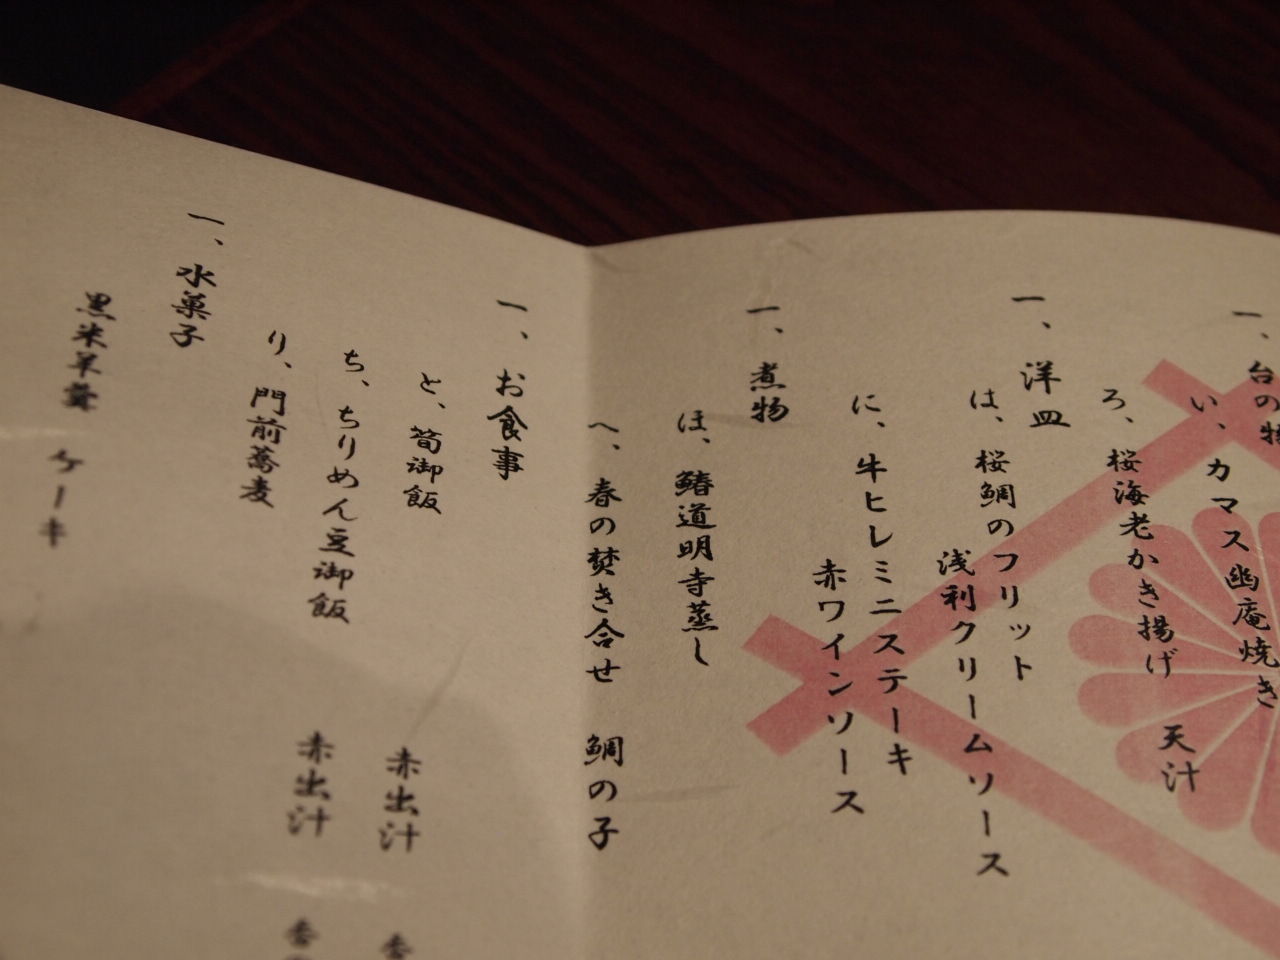 一、台の物
い、カマス幽庵焼き
ろ、桜海老かき揚げ 天汁
一、洋皿
は、桜鯛のフリット
浅利クリームソース
に、牛ヒレミニステーキ
赤ワインソース
一、煮物
ほ、鰆道明寺蒸し
へ、春の焚き合せ 鯛の子
一、お食事
と、筍御飯 赤出汁 香
ち、ちりめん豆御飯 赤出汁 香
り、門前蕎麦
一、水菓子
黒米羊羹 ケーキ